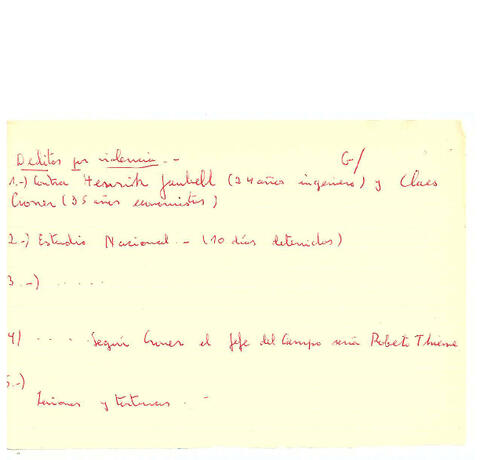 Delitos por violencia.- G/
1.-) Contra Henrik Janbell (24 años ingeniero) y Claes
Croner (35 años economistas)
2.-) Estadio Nacional.- (10 días detenidos)
3.-) .....
4/ .... Según Croner el Jefe del Campo sería Roberto Thieme
5.-)
Lesiones y torturas. .-